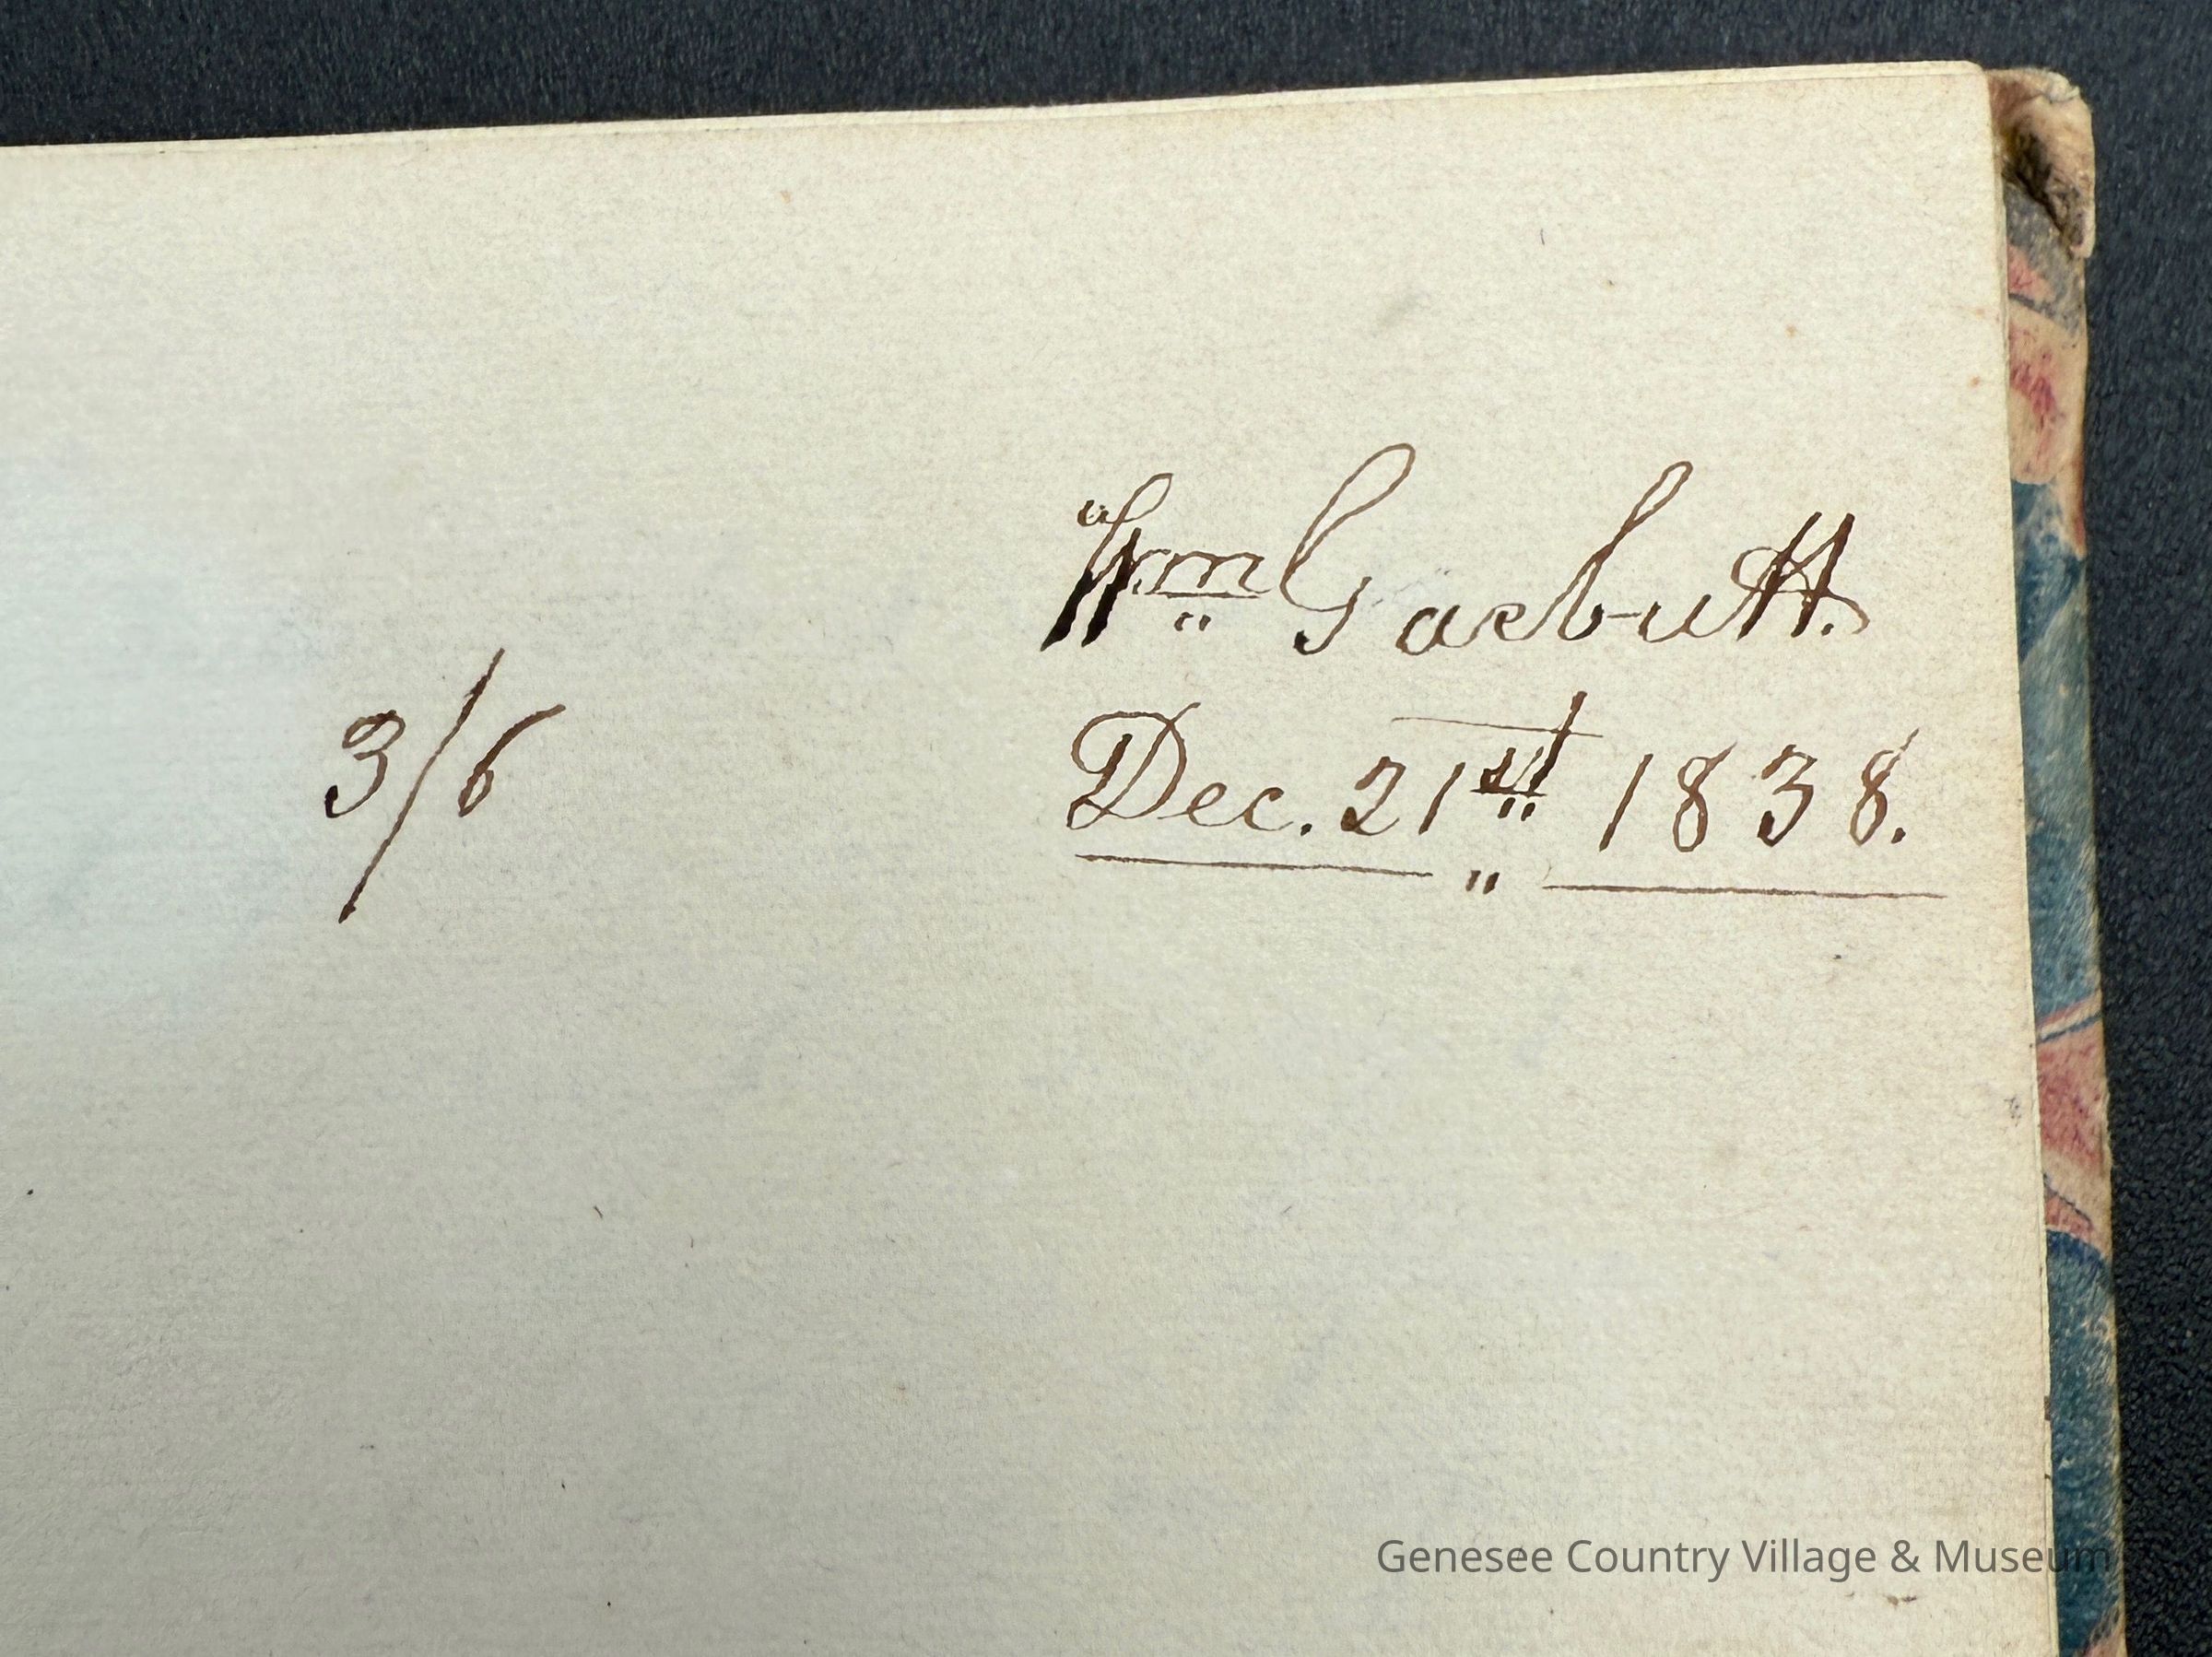 Wm Garbutt.
3/6
Dec. 21st 1838.
"
Genesee Country Village & Museum